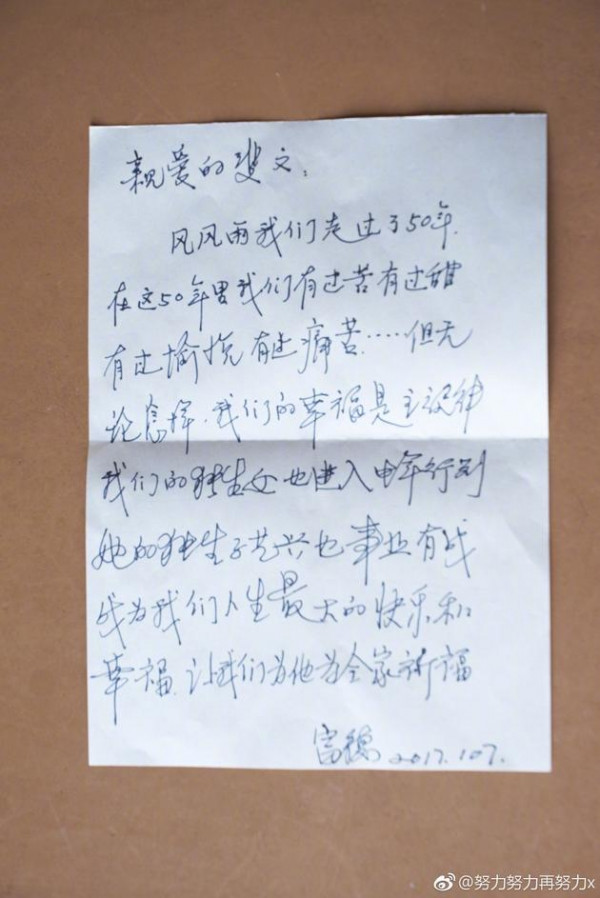 亲爱的斐文:
风风雨我们走过了50年.
在这50年里我们有过苦有过甜
有过愉悦有过痛苦……但无
论怎样.我们的幸福是主旋律
我们的独生女也进入中年行列
她的独生子艺兴也事业有成
成为我们人生最大的快乐和
幸福.让我们为他为全家祈福
富德 2017.10.7.
@努力努力再努力x